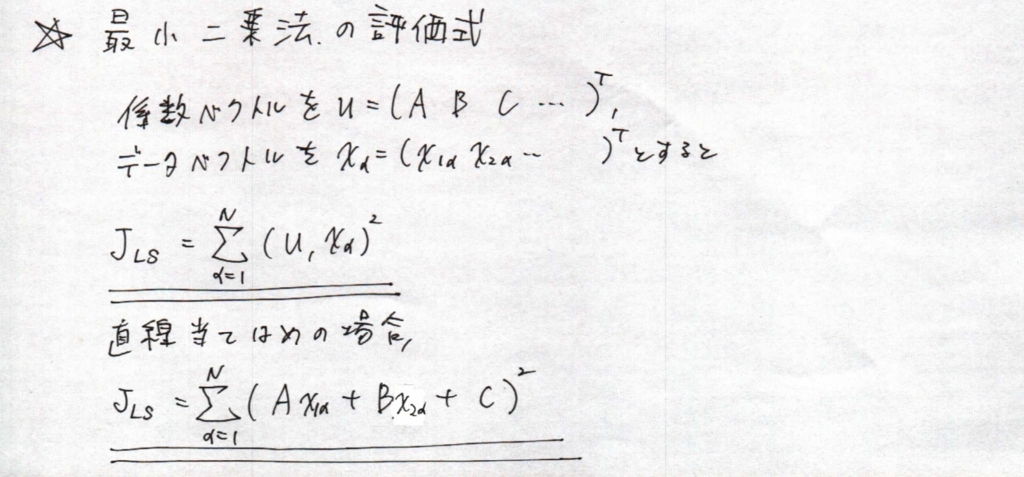 ☆ 最小二乗法の評価式
係数ベクトルを u = (A B C … )ᵀ,
データベクトルを xα = (x1α x2α … )ᵀとすると
J_LS = Σ_{α=1}^{N} (u, xα)²
直線当てはめの場合,
J_LS = Σ_{α=1}^{N} (A x1α + B x2α + C)²